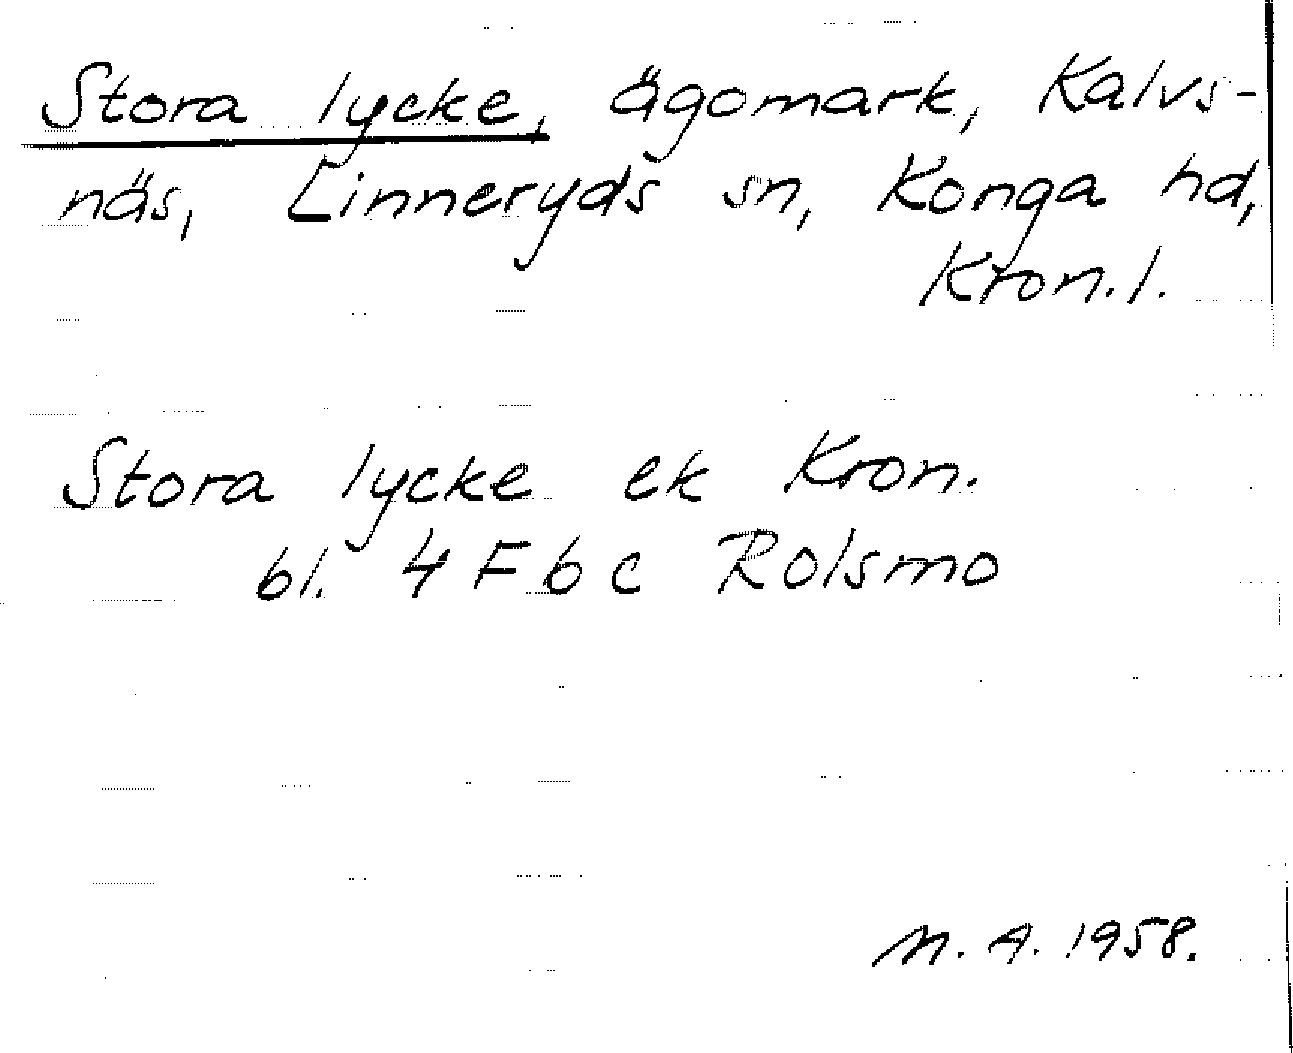 Stora lycke, ägomark, Kalvs-
näs, Linneryds sn, Konga hd,
Kron.l.
Stora lycke ek Kron.
bl. 4 F b c Rolsmo
M. A. 1958.